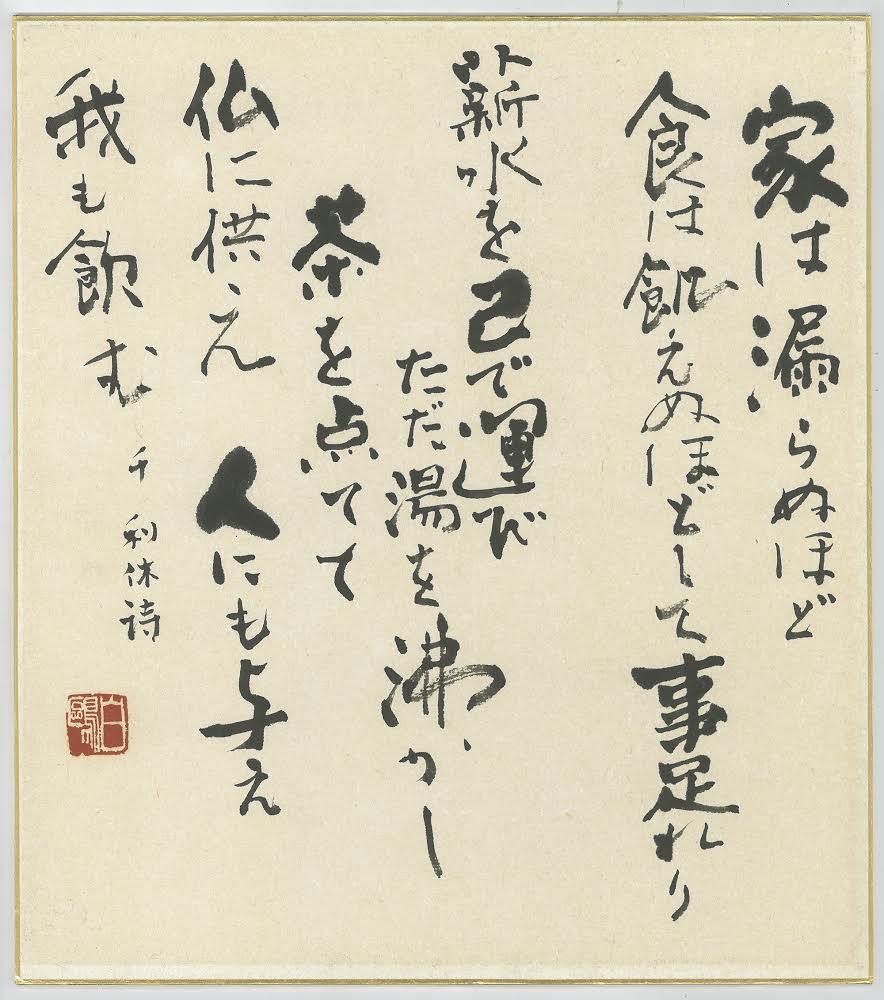 家は漏らぬほど
食は飢えぬほどして事足れり
薪水を己で運び
ただ湯を沸かし
茶を点てて
仏に供え 人にも与え
我も飲む
千 利休詩
白鷗